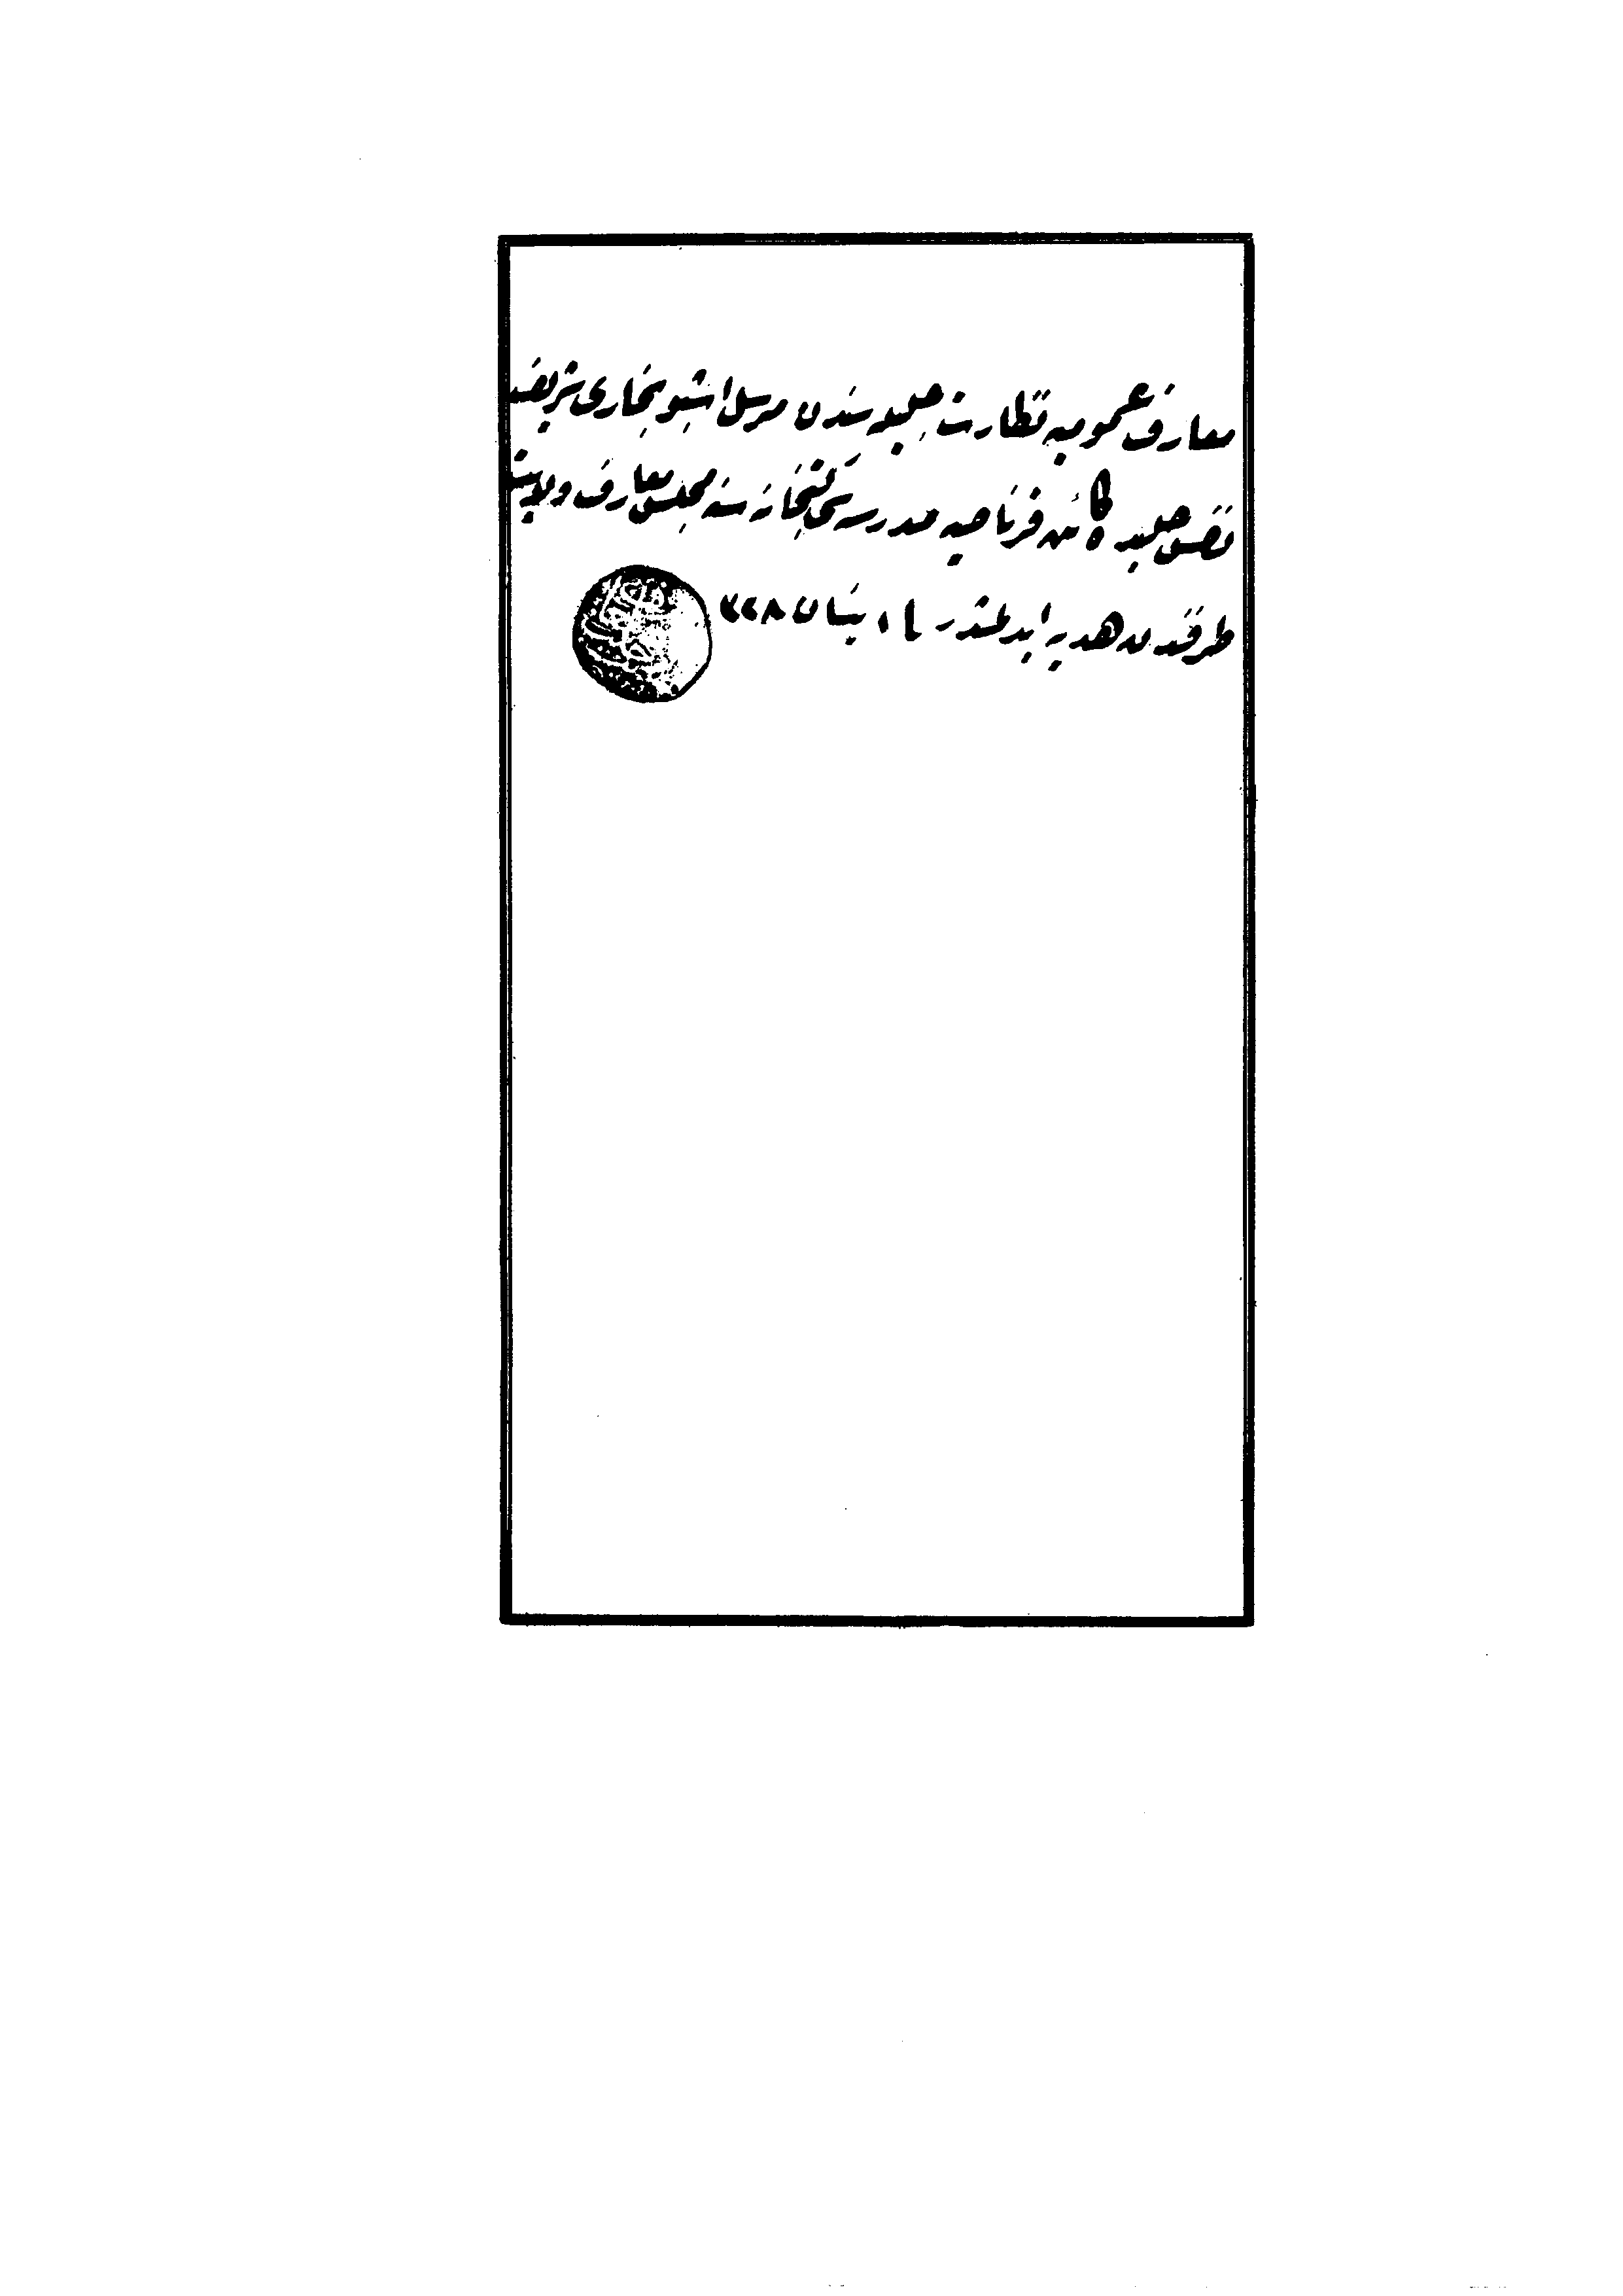 معارف عموميه نظارت جليله سندن مرسل اشبو بخارى شريف
نفس حلبده كائن قرناصيه مدرسه سى كتبخانه سنه مجلس معارف ولايت
طرفندن هديه ايدلمشدر نيسان